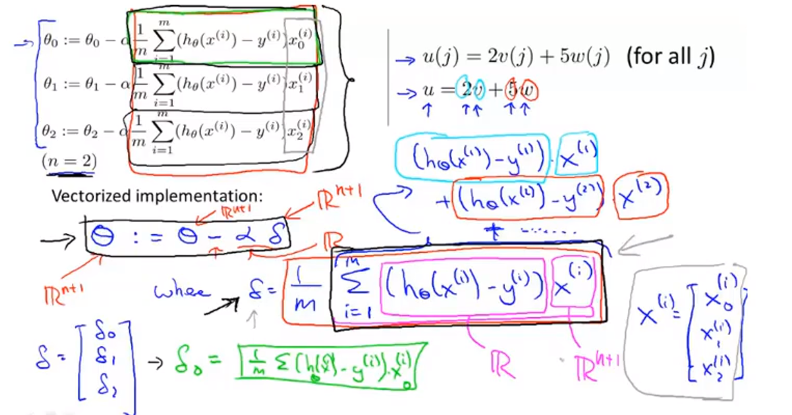 θ₀ := θ₀ − α 1/m ∑_{i=1}^{m} (h_θ(x^{(i)}) − y^{(i)}) x₀^{(i)}
θ₁ := θ₁ − α 1/m ∑_{i=1}^{m} (h_θ(x^{(i)}) − y^{(i)}) x₁^{(i)}
θ₂ := θ₂ − α 1/m ∑_{i=1}^{m} (h_θ(x^{(i)}) − y^{(i)}) x₂^{(i)}
(n = 2)
→ u(j) = 2v(j) + 5w(j) (for all j)
→ u = 2v + 5w
(h_θ(x^{(1)}) − y^{(1)}) · x^{(1)}
+ (h_θ(x^{(2)}) − y^{(2)}) · x^{(2)}
+ ······
Vectorized implementation:
ℝ^{n+1} ℝ^{n+1}
→ θ := θ − α δ
ℝ^{n+1} ℝ
where → δ = 1/m ∑_{i=1}^{m} (h_θ(x^{(i)}) − y^{(i)}) x^{(i)}
ℝ ℝ^{n+1}
x^{(i)} = [x₀^{(i)} x₁^{(i)} x₂^{(i)}]
δ = [δ₀ δ₁ δ₂] → δ₀ = 1/m ∑ (h_θ(x^{(i)}) − y^{(i)}) · x₀^{(i)}